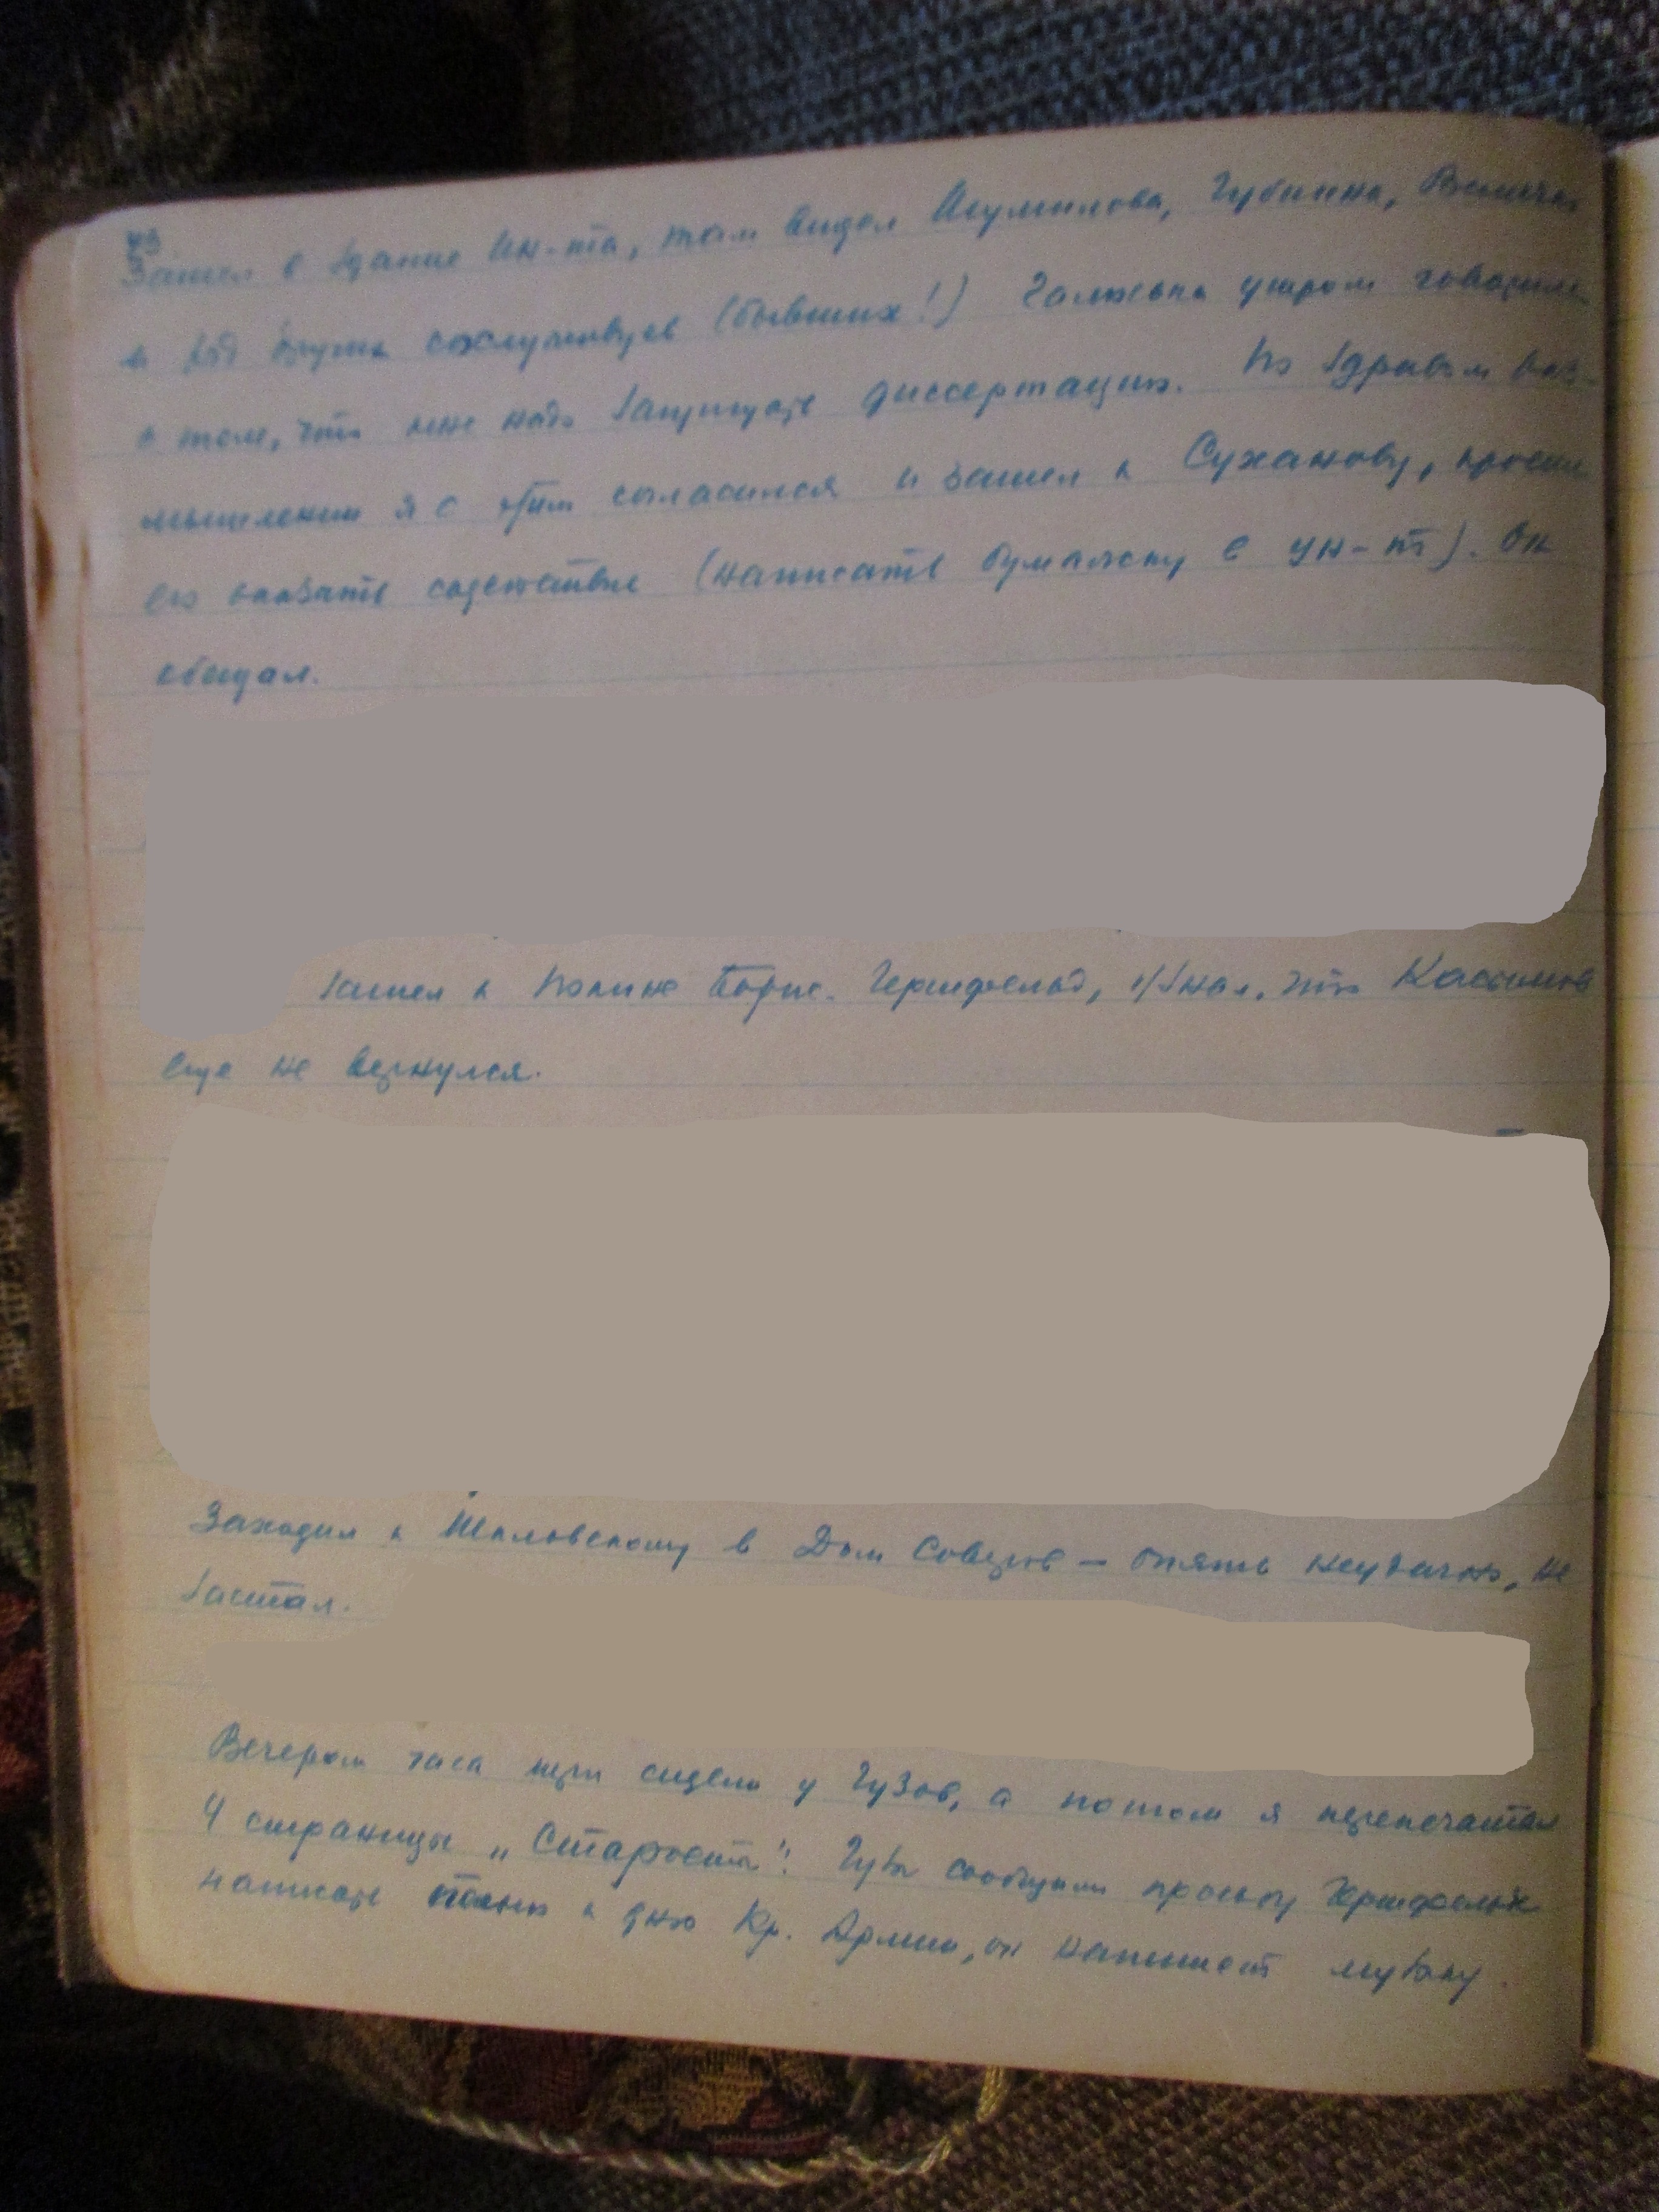 Зашел в здание Ин-та, там видел Шумилова, Губина,
и ряд других сослуживцев (бывших!) Галюська утром говорила
о том, что мне надо защищать диссертацию. По здравом раз-
мышлении я с этим согласился и зашел к Суханову, просил
его оказать содействие (написать бумажку в ун-т). Он
обещал.
Зашел к Полине Борис. Гершфельд, узнал, что Касьянов
еще не вернулся.
Заходил к Шкловскому в Дом Советов — опять неудачно, не
застал.
Вечером часа три сидели у Гузов, а потом я перепечатал
4 страницы „Старости". Гузы сообщили просьбу Гершфельд
написать песню к дню Кр. Армии, он напишет музыку.